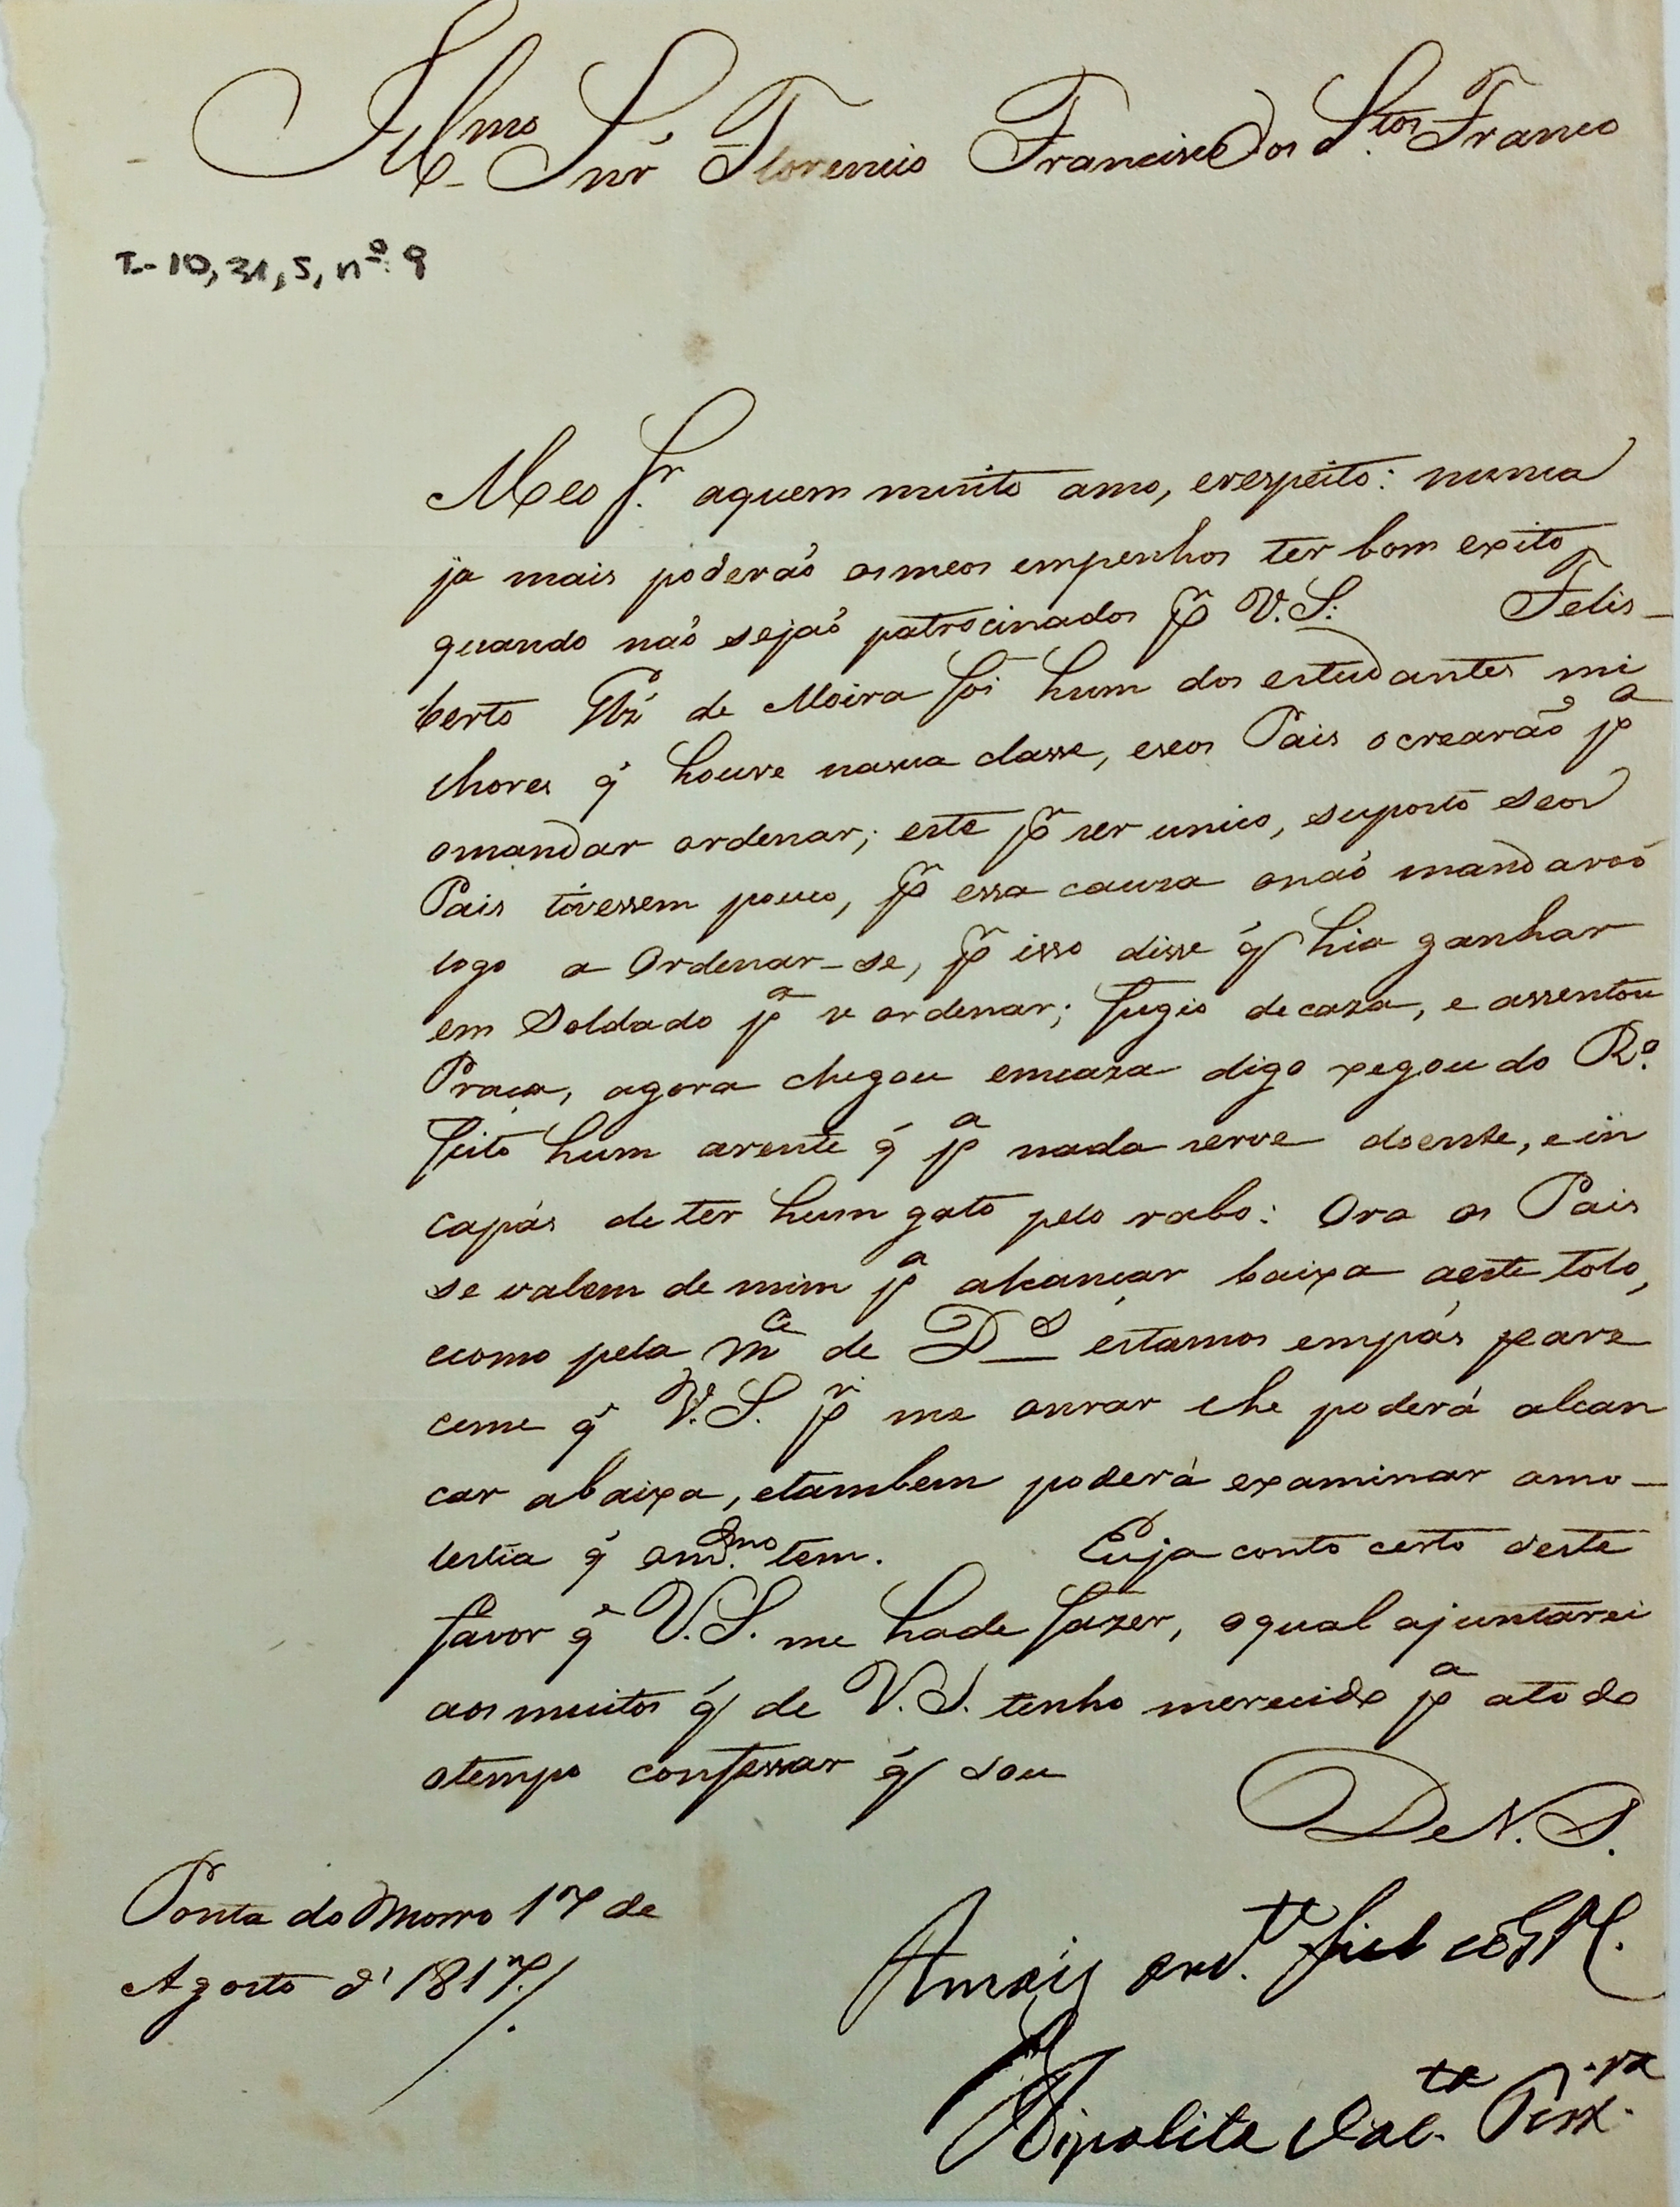 Illmo Snr Florencio Francisco dos Stos Franco
I-10,31,5, nº 9
Meo Sr. aquem muito amo, erespeito: nunca
ja mais poderaõ osmeos empenhos ter bom exito
quando naõ sejaõ patrocinados pr V.S. Felis-
berto de Moira foi hum dos estudantes mi
lhores q' houve nasua classe, eseos Pais ocrearaõ pa
omandar ordenar; este pr ser unico, suposto seos
Pais tivessem pouco, pr essa cauza onaõ mandaraõ
logo a Ordenar-se, pr isso disse q' hia ganhar
em Soldado pa se ordenar; fugio decaza, e assentou
Praça, agora chegou emcaza digo xegou do Ro.
feito hum arente q' pa nada serve doente, ein
capás deter hum gato pelo rabo: Ora os Pais
se valem de mim pa alcançar baixa aeste tolo,
ecomo pela mce de Ds estamos empás pare
ceme q' V.S. pr me onrar lhe poderá alcan
car abaixa, etambem poderá examinar amo-
lestia q' omdmo. tem. Euja conto certo deste
favor q' V.S. me hade fazer, oqual ajuntarei
aos muitos q' de V.S. tenho merecido pa atodo
otempo confessar q' sou
De V.S.
Ponta do Morro 17 de
Agosto d' 1817./.
Amais fiel
Hipolita Teixra